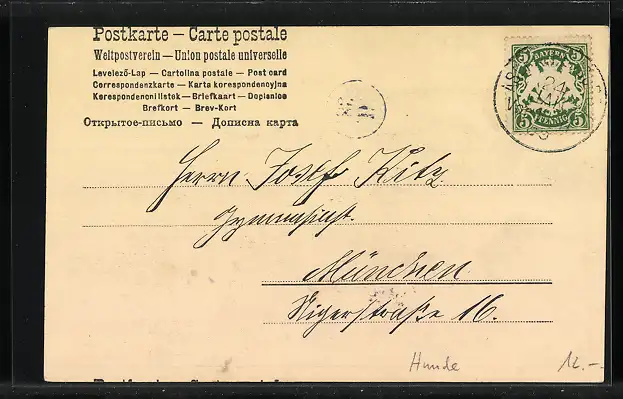 Postkarte — Carte postale
Weltpostverein — Union postale universelle
Levelező-Lap — Cartolina postale — Post card
Correspondenzkarte — Karta korespondencyjna
Korespondencní lístek — Briefkaart — Dopisnice
Brefkort — Brev-Kort
Открытое-письмо — Дописна карта
5 BAYERN 5
24
5 PFENNIG 5
Herrn Josef Kitz
Gymnasiast.
München
16.
Hunde 12.-